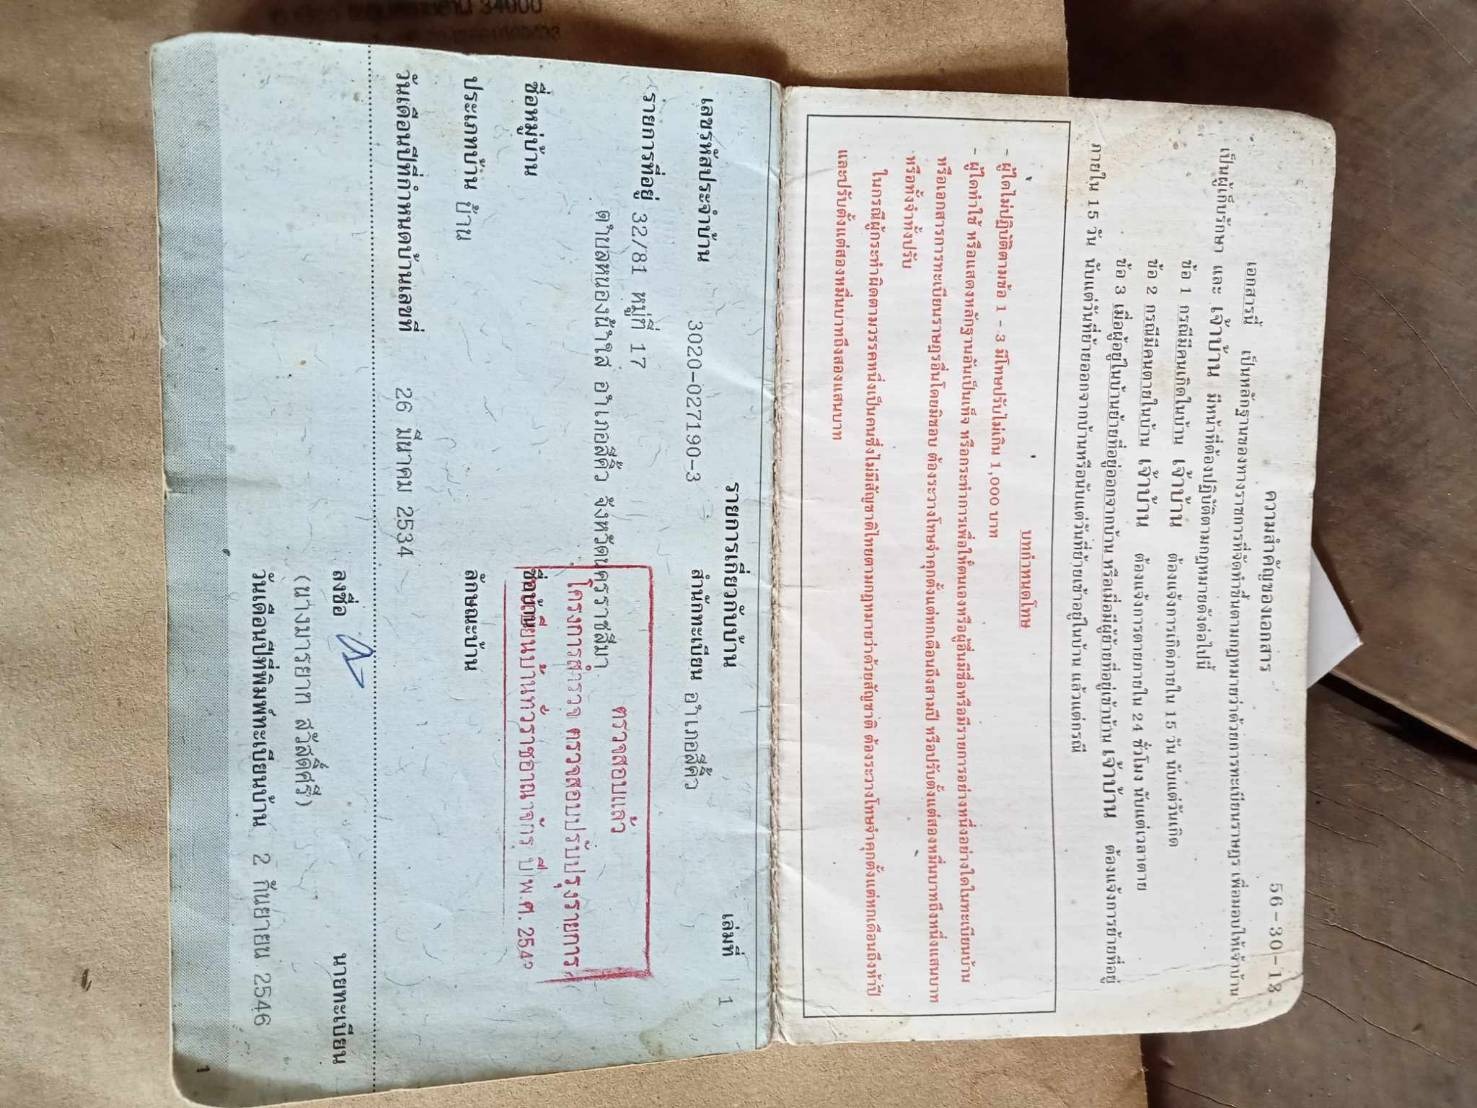 ความสำคัญของเอกสาร
56-30-13
เอกสารนี้ เป็นหลักฐานของทางราชการที่จัดทำขึ้นตามกฎหมายว่าด้วยการทะเบียนราษฎร เพื่อมอบให้เจ้าบ้าน
เป็นผู้เก็บรักษา และ เจ้าบ้าน มีหน้าที่ต้องปฏิบัติตามกฎหมายดังต่อไปนี้
ข้อ 1 กรณีมีคนเกิดในบ้าน เจ้าบ้าน ต้องแจ้งการเกิดภายใน 15 วัน นับแต่วันเกิด
ข้อ 2 กรณีมีคนตายในบ้าน เจ้าบ้าน ต้องแจ้งการตายภายใน 24 ชั่วโมง นับแต่เวลาตาย
ข้อ 3 เมื่อผู้อยู่ในบ้านย้ายที่อยู่ออกจากบ้าน หรือเมื่อมีผู้ย้ายที่อยู่เข้าบ้าน เจ้าบ้าน ต้องแจ้งการย้ายที่อยู่
ภายใน 15 วัน นับแต่วันที่ย้ายออกจากบ้านหรือนับแต่วันที่ย้ายเข้าอยู่ในบ้าน แล้วแต่กรณี
บทกำหนดโทษ
- ผู้ใดไม่ปฏิบัติตามข้อ 1 - 3 มีโทษปรับไม่เกิน 1,000 บาท
- ผู้ใดทำใช้ หรือแสดงหลักฐานอันเป็นเท็จ หรือกระทำการเพื่อให้ตนเองหรือผู้อื่นมีชื่อหรือมีรายการอย่างหนึ่งอย่างใดในทะเบียนบ้าน
หรือเอกสารการทะเบียนราษฎรอื่นโดยมิชอบ ต้องระวางโทษจำคุกตั้งแต่หกเดือนถึงสามปี หรือปรับตั้งแต่สองหมื่นบาทถึงหนึ่งแสนบาท
หรือทั้งจำทั้งปรับ
ในกรณีผู้กระทำผิดตามวรรคหนึ่งเป็นคนซึ่งไม่มีสัญชาติไทยตามกฎหมายว่าด้วยสัญชาติ ต้องระวางโทษจำคุกตั้งแต่หกเดือนถึงห้าปี
และปรับตั้งแต่สองหมื่นบาทถึงสองแสนบาท
รายการเกี่ยวกับบ้าน เล่มที่ 1
เลขรหัสประจำบ้าน 3020-027190-3 สำนักทะเบียน อำเภอสีคิ้ว
รายการที่อยู่ 32/81 หมู่ที่ 17
ตำบลหนองน้ำใส อำเภอสีคิ้ว จังหวัดนครราชสีมา
ตรวจสอบแล้ว
โครงการสำรวจ ตรวจสอบปรับปรุงรายการ
ทะเบียนบ้านทั่วราชอาณาจักร ปี พ.ศ.
ชื่อหมู่บ้าน ชื่อบ้าน
ประเภทบ้าน บ้าน ลักษณะบ้าน
วันเดือนปีที่กำหนดบ้านเลขที่ 26 มีนาคม 2534
ลงชื่อ นายทะเบียน
(นางมารยาท สวัสดิ์ศรี)
วันเดือนปีที่พิมพ์ทะเบียนบ้าน 2 กันยายน 2546
1
34000